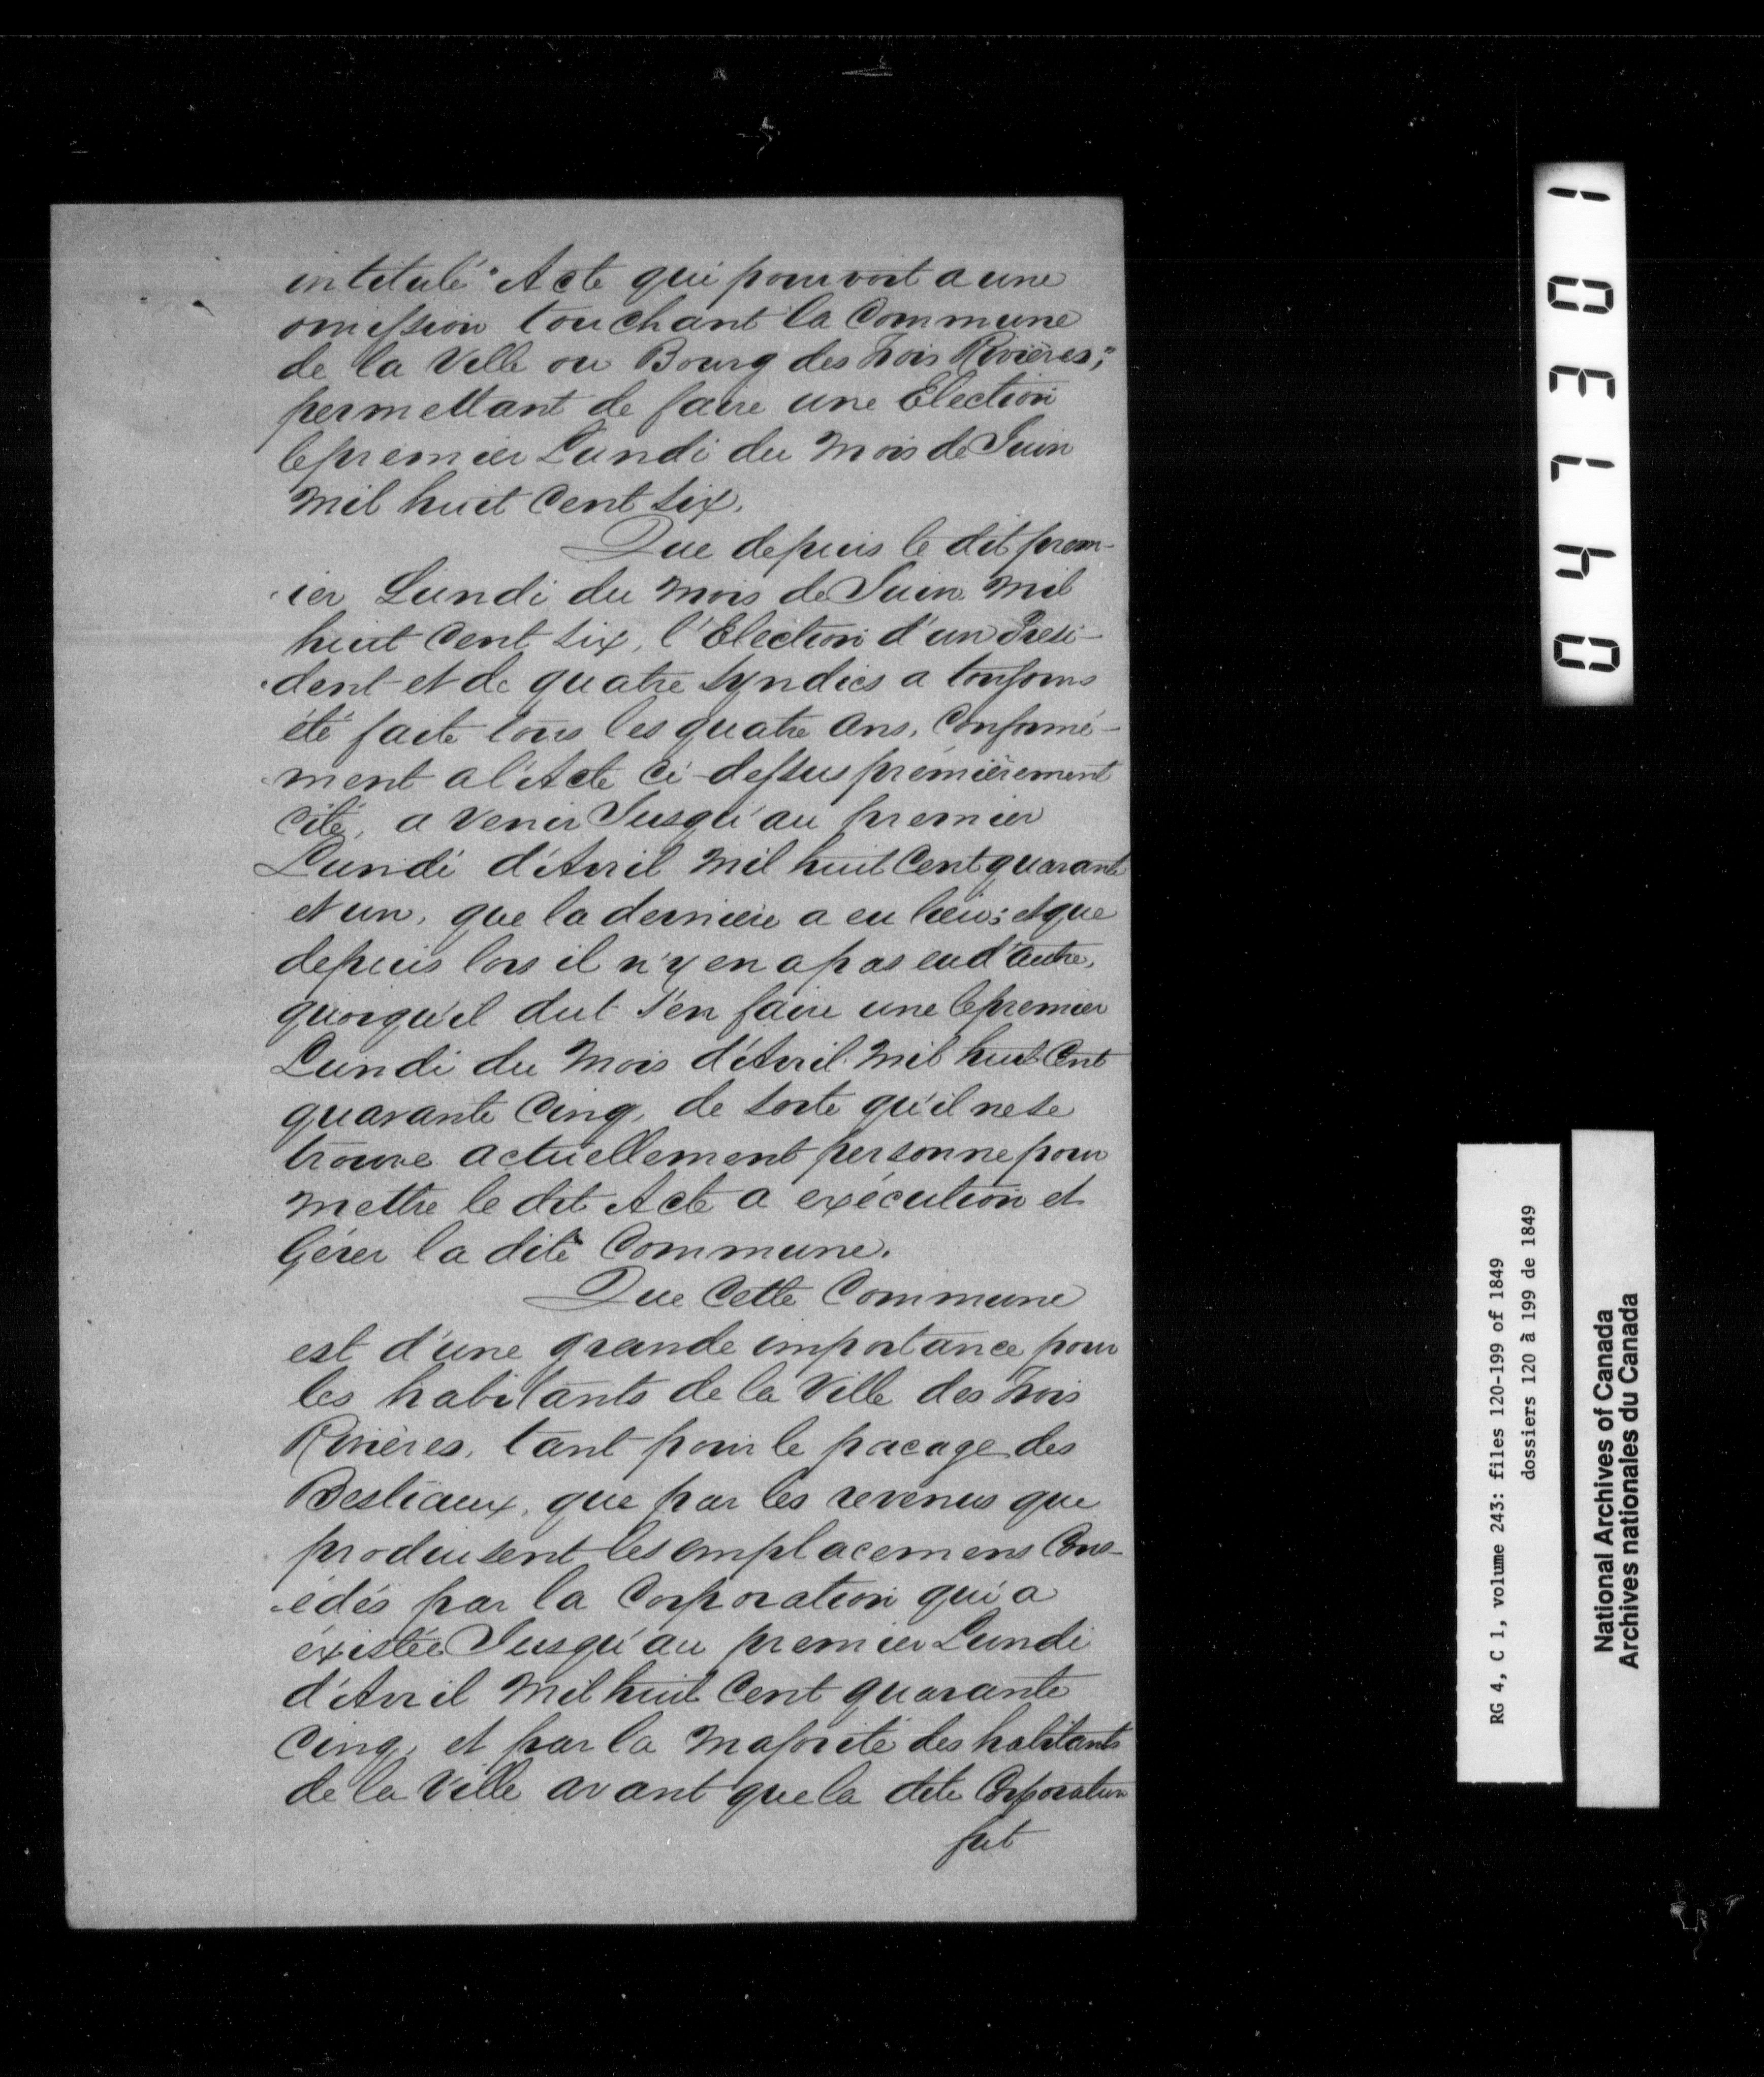 intitulé "Acte qui pourvoit a une
omission touchant la Commune
de la Ville ou Bourg des Trois Rivières;"
permettant de faire une Election
le premier Lundi du Mois de Juin
Mil huit Cent six.
Que depuis le dit prem-
ier Lundi du Mois de Juin Mil
huit Cent six, l'Election d'un Presi-
dent et de quatre Syndics a toujours
été faite tous les quatre Ans, Conformé-
ment a l'Acte Ci-dessus premièrement
Cité, a venir Jusqu'au premier
Lundi d'Avril Mil huit Cent quarante
et un, que la dernière a eu lieu; et que
depuis lors il n'y en a pas eu d'autre,
quoiqu'il dut s'en faire une le premier
Lundi du Mois d'Avril Mil huit Cent
quarante Cinq, de sorte qu'il ne se
trouve actuellement personne pour
Mettre le dit Acte a exécution et
Gérer la dite Commune.
Que Cette Commune
est d'une grande importance pour
les habitants de la Ville des Trois
Rivières, tant pour le pacage des
Bestiaux, que par les revenus que
produisent les emplacemens Conc-
édés par la Corporation qui a
éxistée Jusqu'au premier Lundi
d'Avril Mil huit Cent quarante
Cinq, et par la Majorité des habitants
de la Ville avant que la dite Corporation
fut
047301
RG 4, C 1, volume 243: files 120-199 of 1849
dossiers 120 à 199 de 1849
National Archives of Canada
Archives nationales du Canada